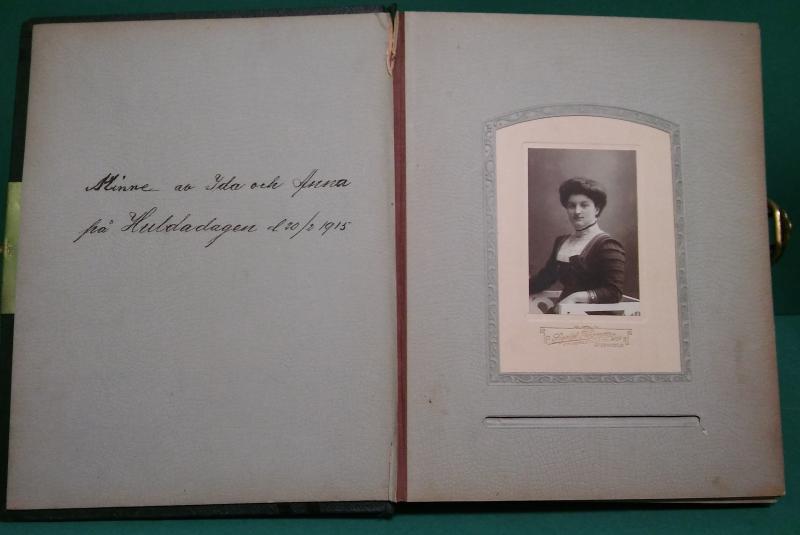 Minne av Ida och Anna
på Huldadagen d 20/2 1915